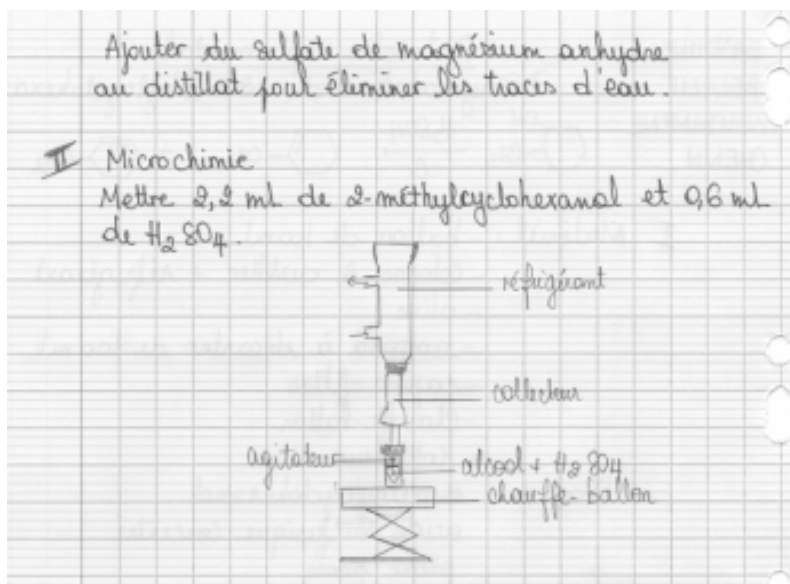 Ajouter du sulfate de magnésium anhydre
au distillat pour éliminer les traces d'eau.
II Microchimie
Mettre 2,2 mL de 2-méthylcyclohexanol et 0,6 mL
de H2SO4.
réfrigérant
collecteur
agitateur
alcool + H2SO4
chauffe-ballon